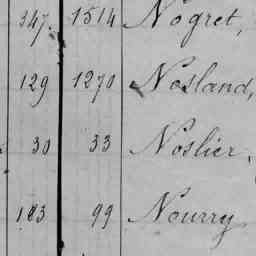 347 1514 Nogret,
129 1270 Nosland,
30 33 Noslier,
183 99 Nourry